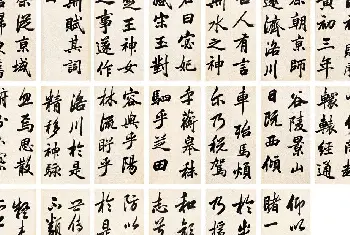 黄初三年
余朝京師
還濟洛川
古人有言
斯水之神
名曰宓妃
感宋玉對
楚王神女
之事遂作
斯賦其詞
從京域
轘轅經通
谷陵景山
日既西傾
車殆馬煩
尔乃税駕
乎蘅皋秣
駟乎芝田
容與乎陽
林流眄乎
洛川於是
精移神駭
忽焉思散
仰以
睹一
於
乃
和
志
防以
於是